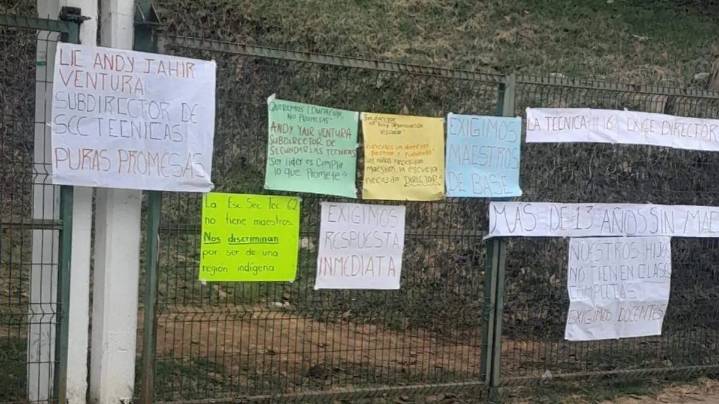 LIC ANDY JAHIR
VENTURA
SUBDIRECTOR DE
SCC TECNICAS
PURAS PROMESAS
QUEREMOS EDUCACIÓN,
NO PROMESAS
ANDY YAIR VENTURA
SUBDIRECTOR DE
SECUNDARIAS TÉCNICAS
Ser lider es cumplir
lo que Promete
necesita DIRECTOR
EXIGIMOS
MAESTROS
DE BASE
LA TECNICA # 161 EXIGE DIRECTOR
La Esc. Sec. Tec 62
no tiene maestros.
Nos discriminan
por ser de una
región indígena
EXIGIMOS
RESPUESTA
INMEDIATA
MAS DE 13 AÑOS SIN MAE
NUESTROS HIJOS
NO TIENEN CLASES
COMPLETAS
EXIGIMOS DOCENTES